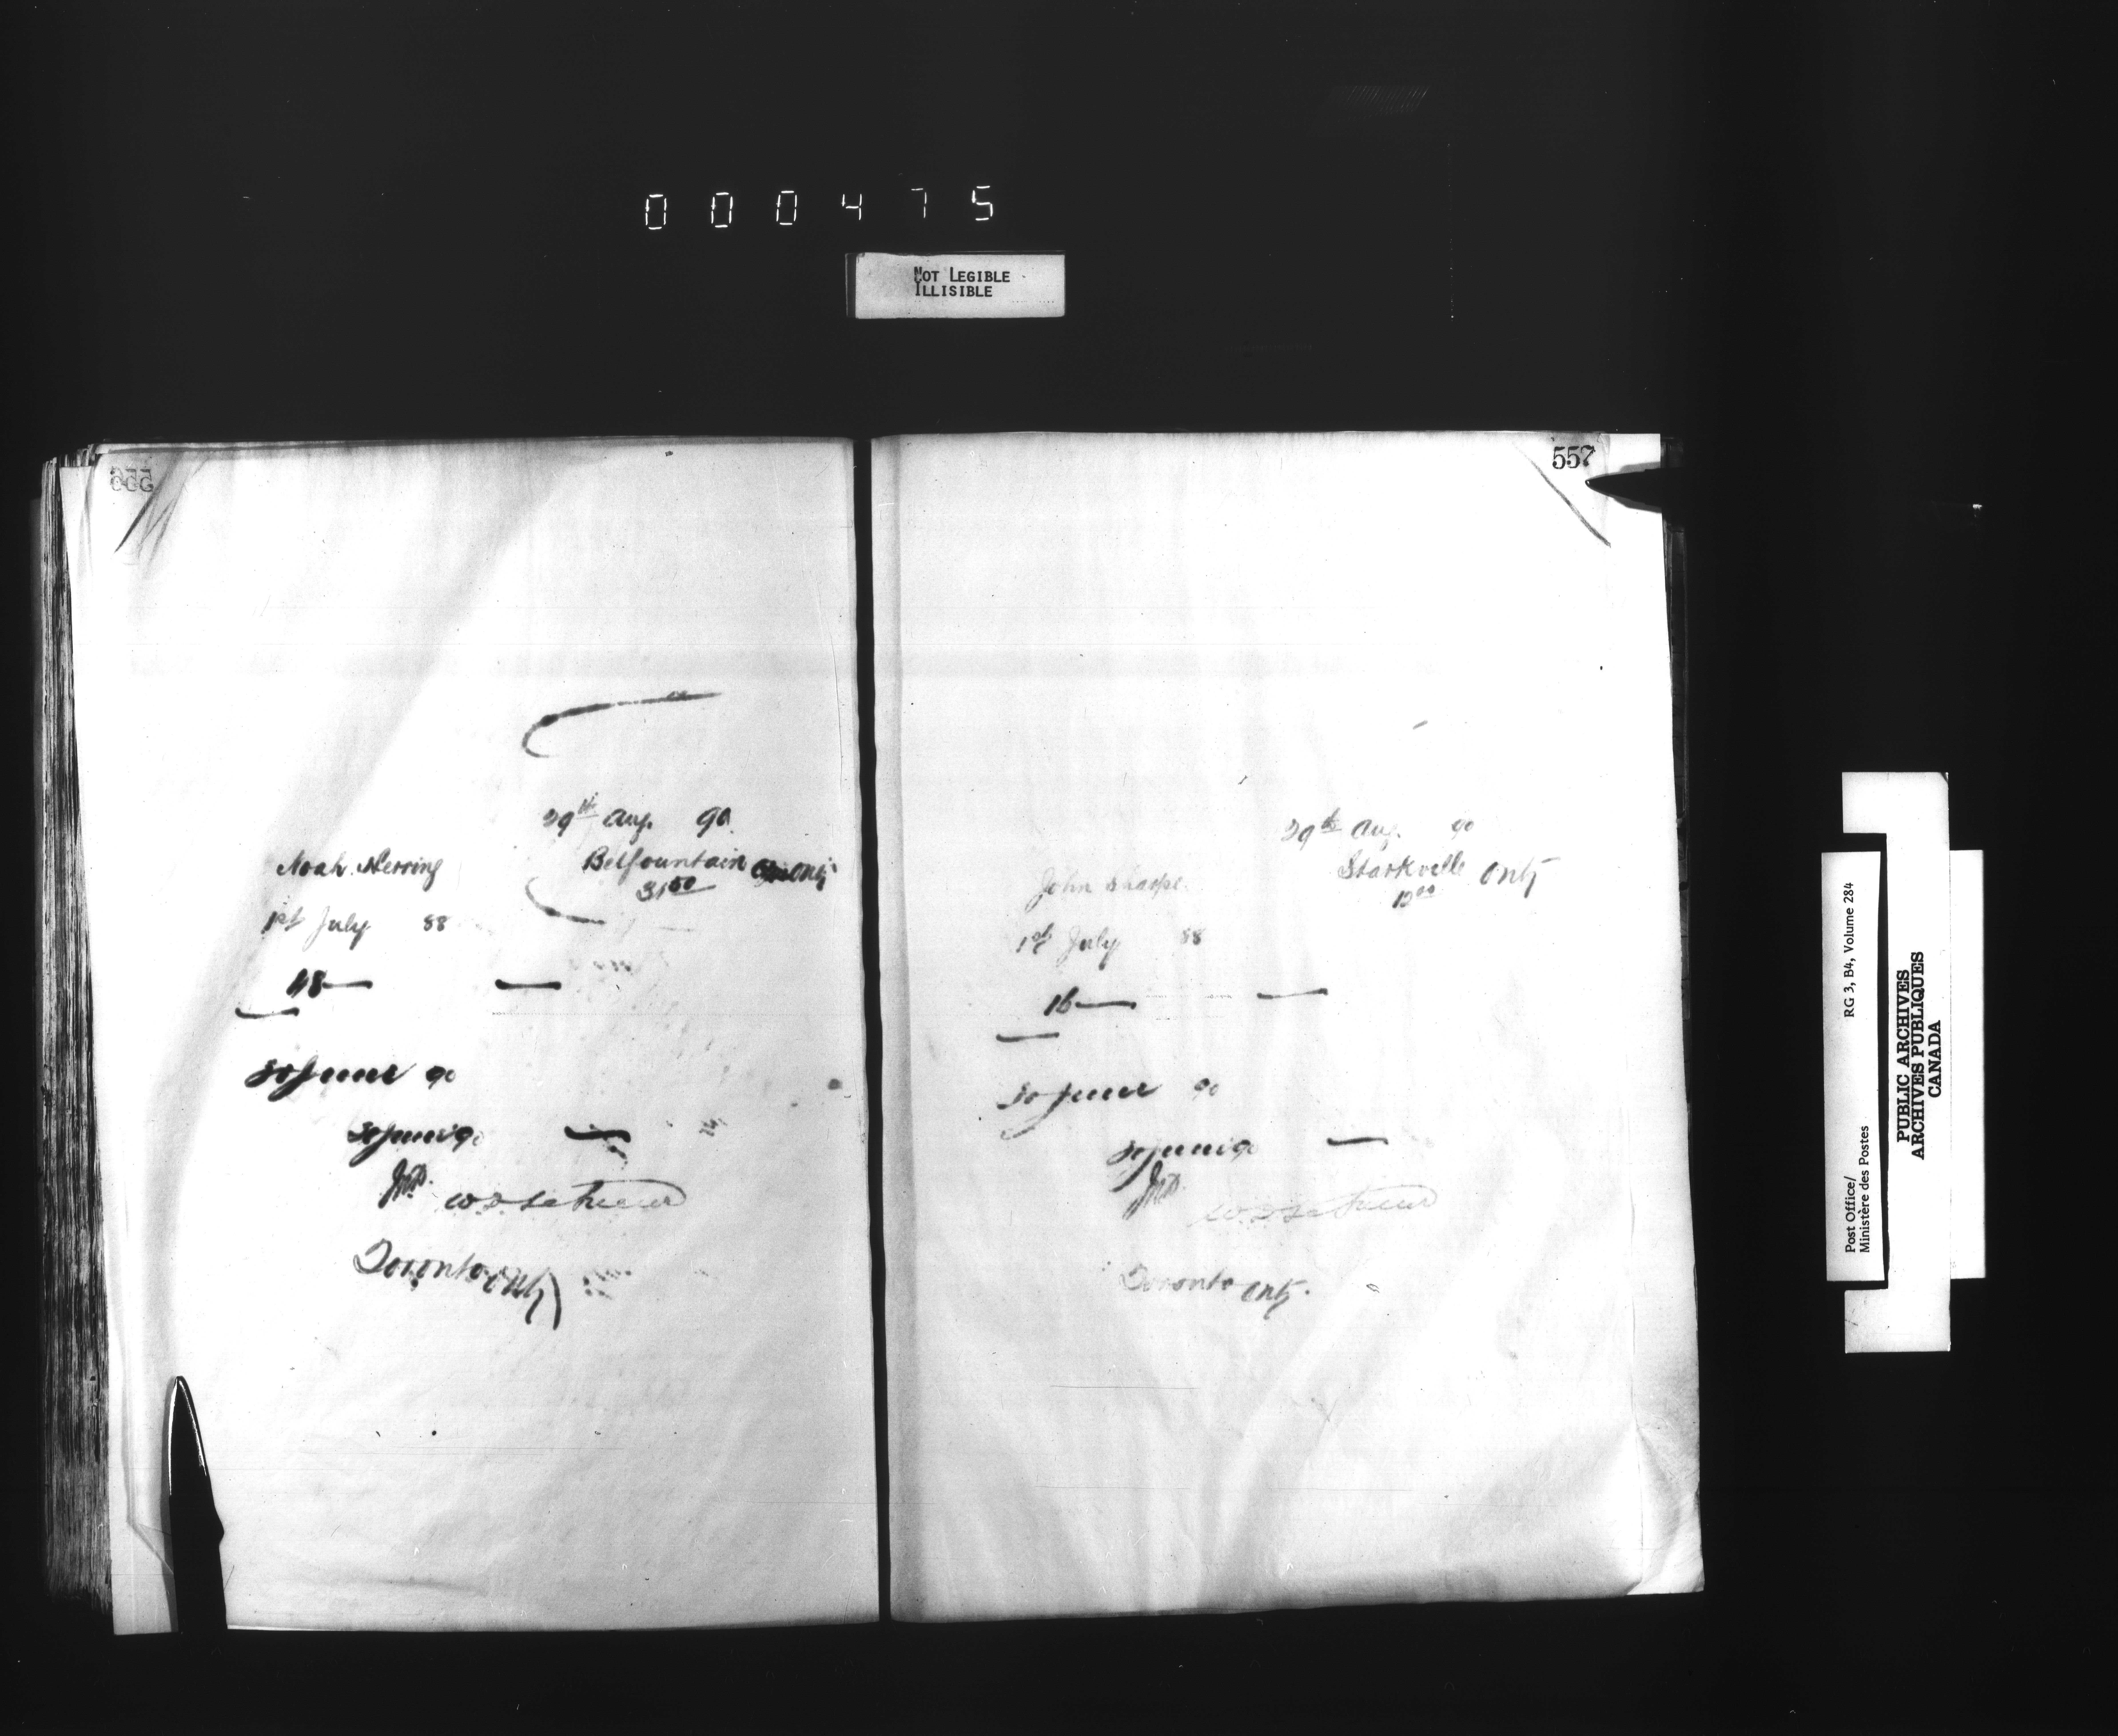 000475
NOT LEGIBLE
ILLISIBLE
29th Aug. 90
Noah Herring
Belfountain Ont
31 50
1st July 88
48
30 June 90
30 June 90
Toronto Ont
557
29th Aug. 90
John Sharpe
Starkville Ont
12 00
1st July 88
16
30 June 90
30 June 90
Toronto Ont.
Post Office/
Ministère des Postes
RG 3, B4, Volume 284
PUBLIC ARCHIVES
ARCHIVES PUBLIQUES
CANADA